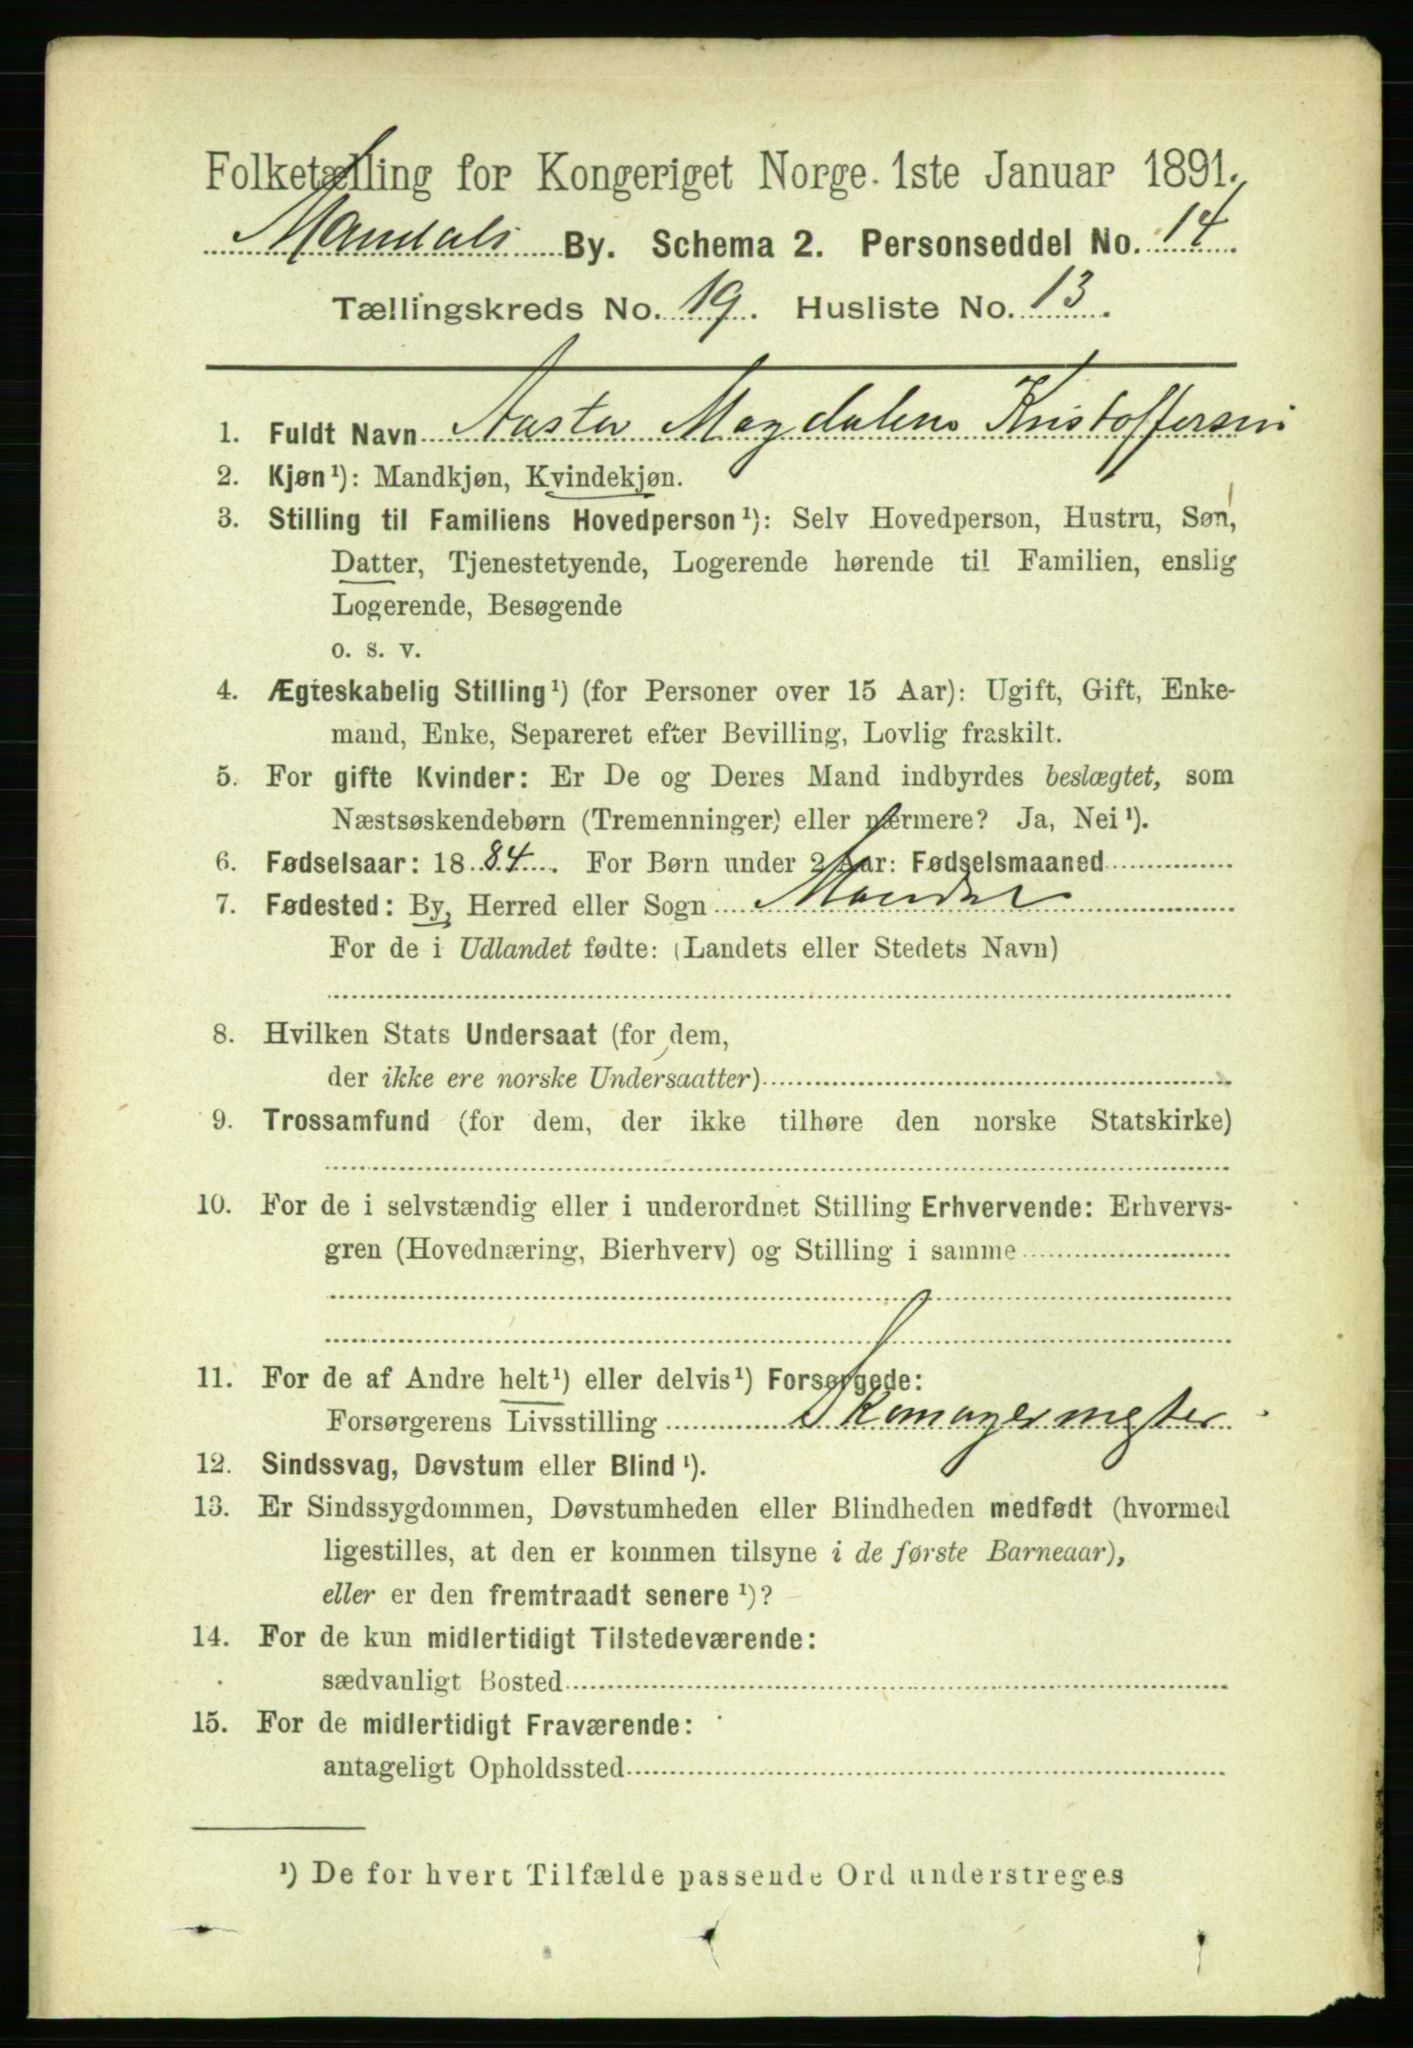 Folketælling for Kongeriget Norge. 1ste Januar 1891.
Mandals By. Schema 2. Personseddel No. 14.
Tællingskreds No. 19. Husliste No. 13.
1. Fuldt Navn Magdalene Kristoffersen
2. Kjøn ¹): Mandkjøn, Kvindekjøn.
3. Stilling til Familiens Hovedperson ¹): Selv Hovedperson, Hustru, Søn,
Datter, Tjenestetyende, Logerende hørende til Familien, enslig
Logerende, Besøgende
o. s. v.
4. Ægteskabelig Stilling ¹) (for Personer over 15 Aar): Ugift, Gift, Enke-
mand, Enke, Separeret efter Bevilling, Lovlig fraskilt.
5. For gifte Kvinder: Er De og Deres Mand indbyrdes beslægtet, som
Næstsøskendebørn (Tremenninger) eller nærmere? Ja, Nei ¹).
6. Fødselsaar: 1884. For Børn under 2 Aar: Fødselsmaaned
7. Fødested: By, Herred eller Sogn Mandal
For de i Udlandet fødte: (Landets eller Stedets Navn)
8. Hvilken Stats Undersaat (for dem,
der ikke ere norske Undersaatter)
9. Trossamfund (for dem, der ikke tilhøre den norske Statskirke)
10. For de i selvstændig eller i underordnet Stilling Erhvervende: Erhvervs-
gren (Hovednæring, Bierhverv) og Stilling i samme
11. For de af Andre helt ¹) eller delvis ¹) Forsørgede:
Forsørgerens Livsstilling Skomagermester
12. Sindssvag, Døvstum eller Blind ¹).
13. Er Sindssygdommen, Døvstumheden eller Blindheden medfødt (hvormed
ligestilles, at den er kommen tilsyne i de første Barneaar),
eller er den fremtraadt senere ¹)?
14. For de kun midlertidigt Tilstedeværende:
sædvanligt Bosted
15. For de midlertidigt Fraværende:
antageligt Opholdssted
¹) De for hvert Tilfælde passende Ord understreges